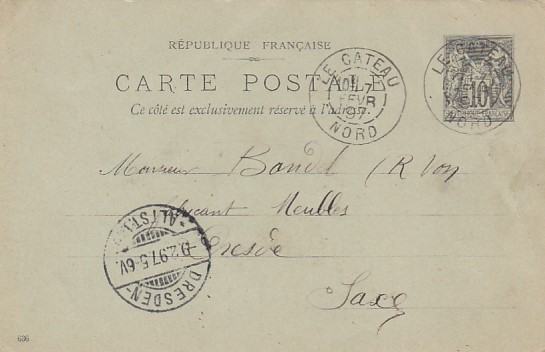 RÉPUBLIQUE FRANÇAISE
CARTE POSTALE
Ce côté est exclusivement réservé à l'adresse
LE CATEAU
FEVR
97
NORD
LE CATEAU
10
NORD
Monsieur (R Von)
Meubles
Dresde
Saxe
ALTST.
9.2.97.5-6V.
DRESDEN-
636